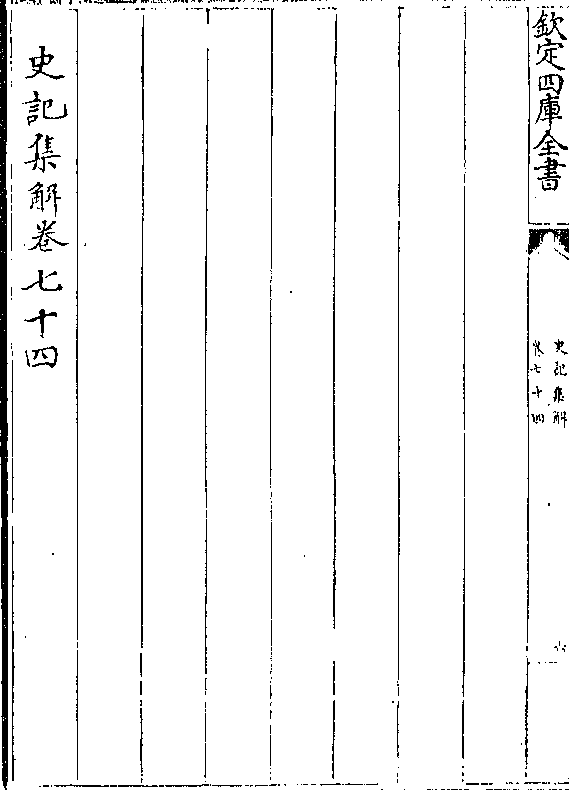 欽定四庫全書
史記集解
卷七十四
六
史記集解卷七十四